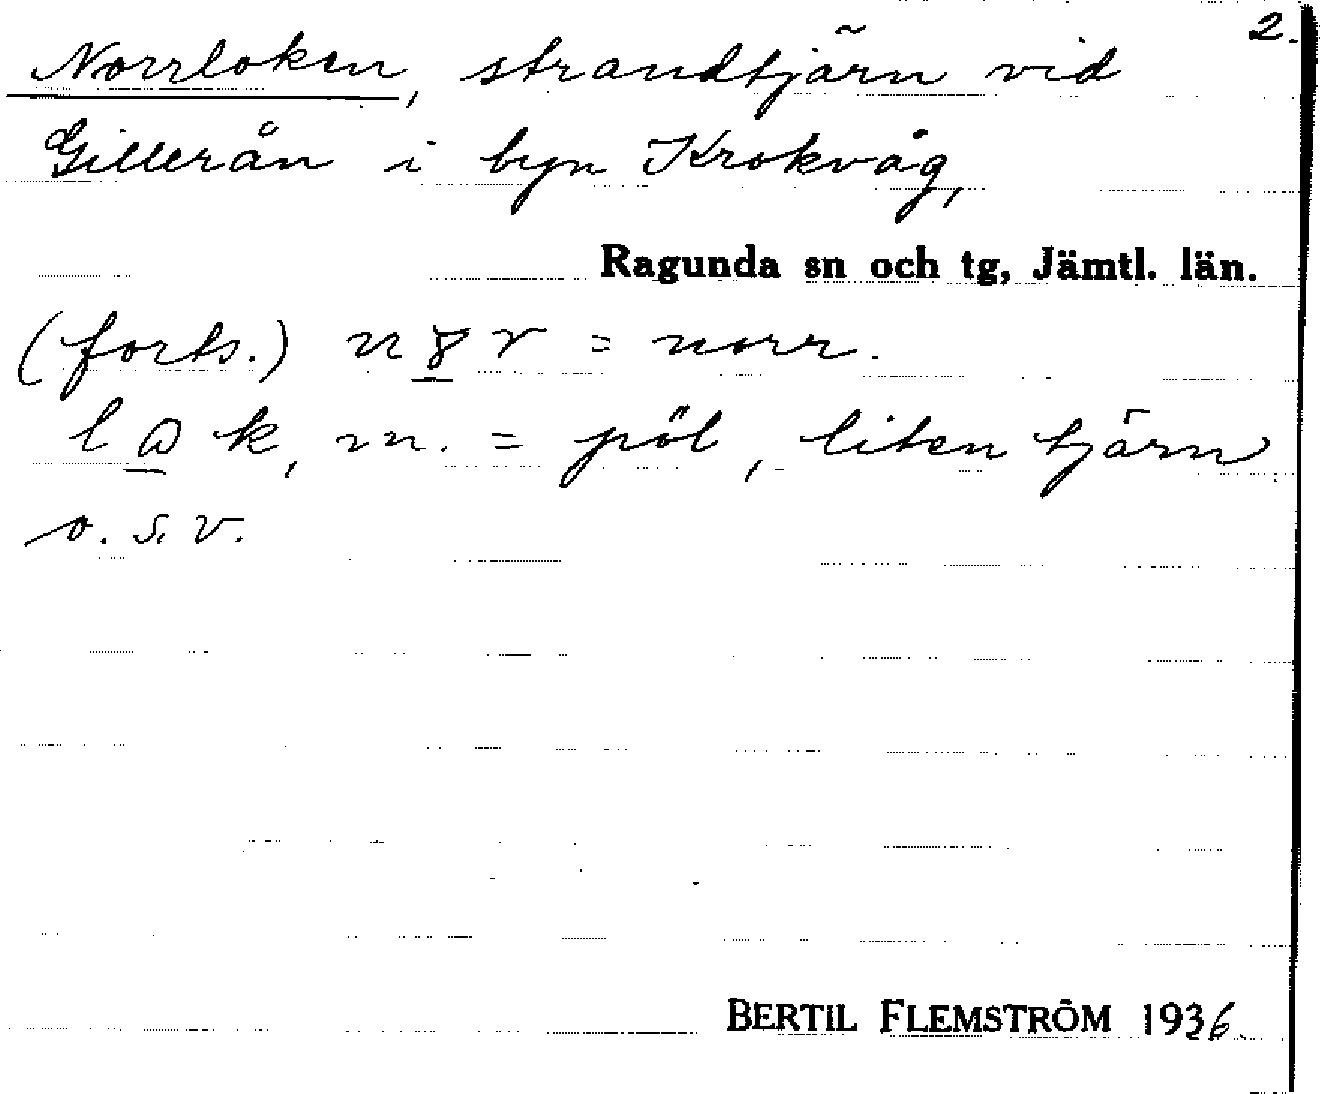 2.
Norrloken, strandtjärn vid
Gillerån i byn Krokvåg,
Ragunda sn och tg, Jämtl. län.
(forts.) n r = norr.
k, m. = pöl, liten tjärn
o. s. v.
BERTIL FLEMSTRÖM 1936.